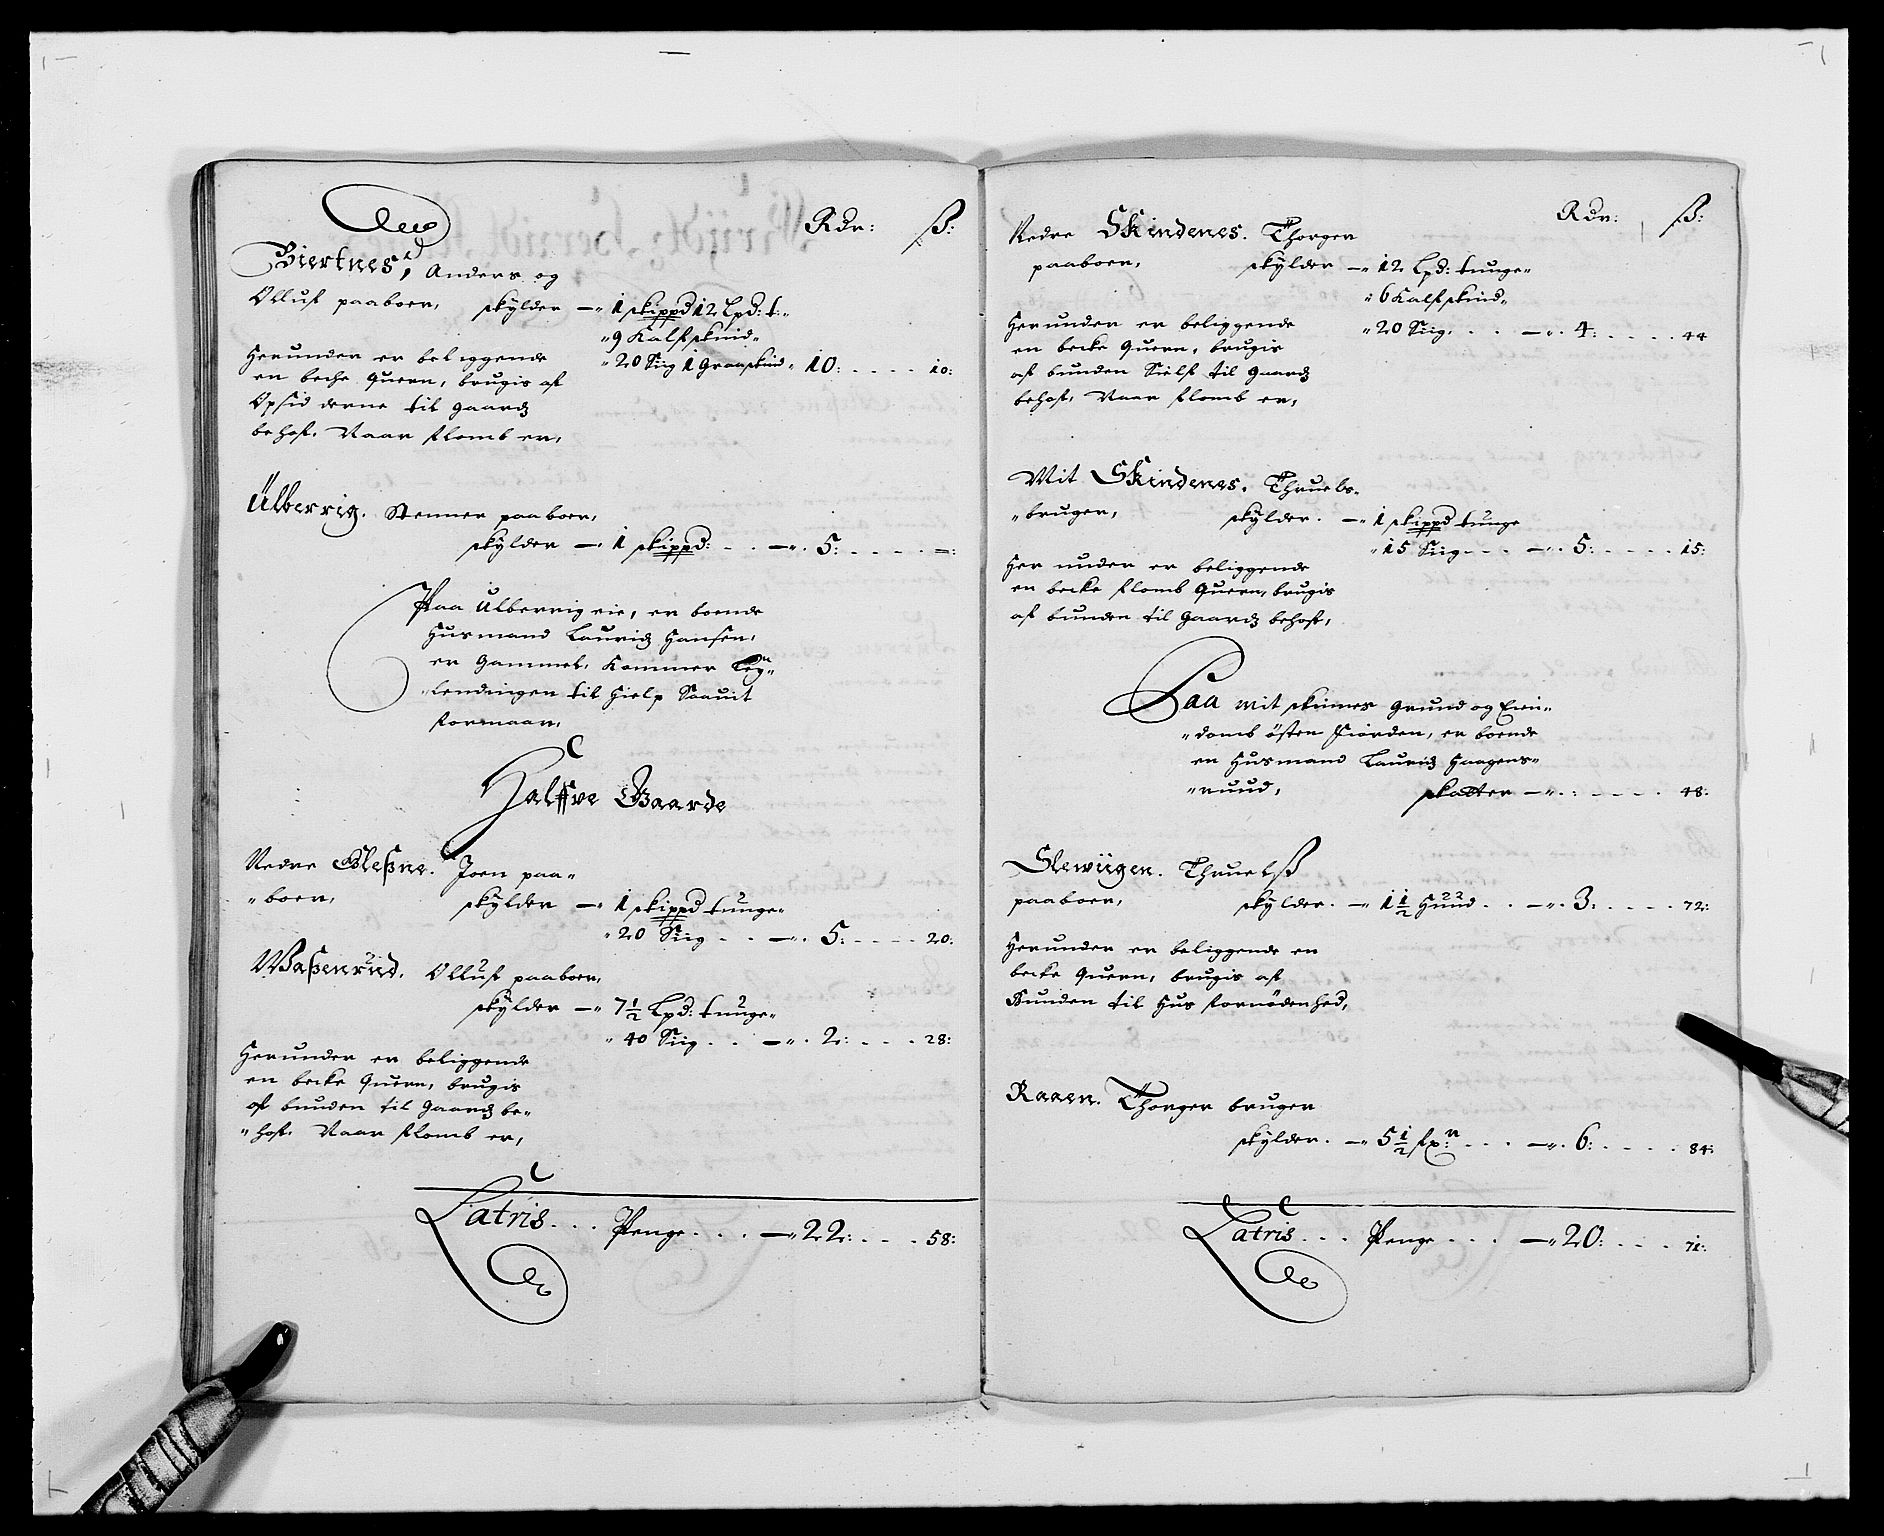 Rdr: ß:
Biertnes, Anders og
Olluf paaboer, skylder — 1 skippd 12 Lpd: t:
9 Kalfskind
Herunder er beliggende
20 Siig 1 Graaskind 10: - - - - 10:
en beche Quern, brugis af
Opsid derne til Gaardz
behof. Naar flomb er,
Ülberrig. Stenner paaboer,
skylder — 1 skippd: - - — 5: - - - - - =:
Paa Ulberrig eie, er boende
Husmand Lauridz Hansen,
er Gammel. Kommer
lendingen til Hielp Saauit
formaar,
Halffve Gaarde
Nedre Gleßne. Joen paa-
boer, skylder — 1 skippd tunge
20 Siig - - — 5: - - - - 20.
Waßenrud. Olluf paaboer,
skylder — 7½ Lpd: tunge
40 Siig - - — 2: - - - 28:
Herunder er beliggende
en becke Quern, brugis
af bunden til Gaardz be-
hof. Naar flomb er,
Latris - - - Penge - - - — 22: - - - 58:
Rdr: ß:
Nedre Skindenes. Thorger
paaboer, skylder — 12 Lpd: tunge
6 Kalfskind
Herunder er beliggende
20 Siig. - - - — 4: - - - - 44
en becke Quern, brugis
af bunden Sielf til Gaardz
behof. Naar flomb er,
Mit Skindenes. Thruels
bruger, skylder. — 1 skippd tunge
15 Siig - - - — 5: - - - - 15:
Her under er beliggende
en becke flomb Quern, brugis
af bunden til Gaardz behof,
Paa mit skinnes Grund og Eien-
domb östen Fiorden, er boende
en Husmand Lauridz Haagens-
ruud, skatter — : - - - - 48:
Slewiigen. Thruelß
paaboer, skylder. — 1½ Huud - - — 3: - - - - 72:
Herunder er beliggende en
becke Quern, brugis af
Bunden til Hus fornödenhed,
Raaen. Thorger bruger
skylder. — 5½ fxr: - - - — 6: - - - - 84:
Latris - - - Penge - - - — 20: - - - 71: